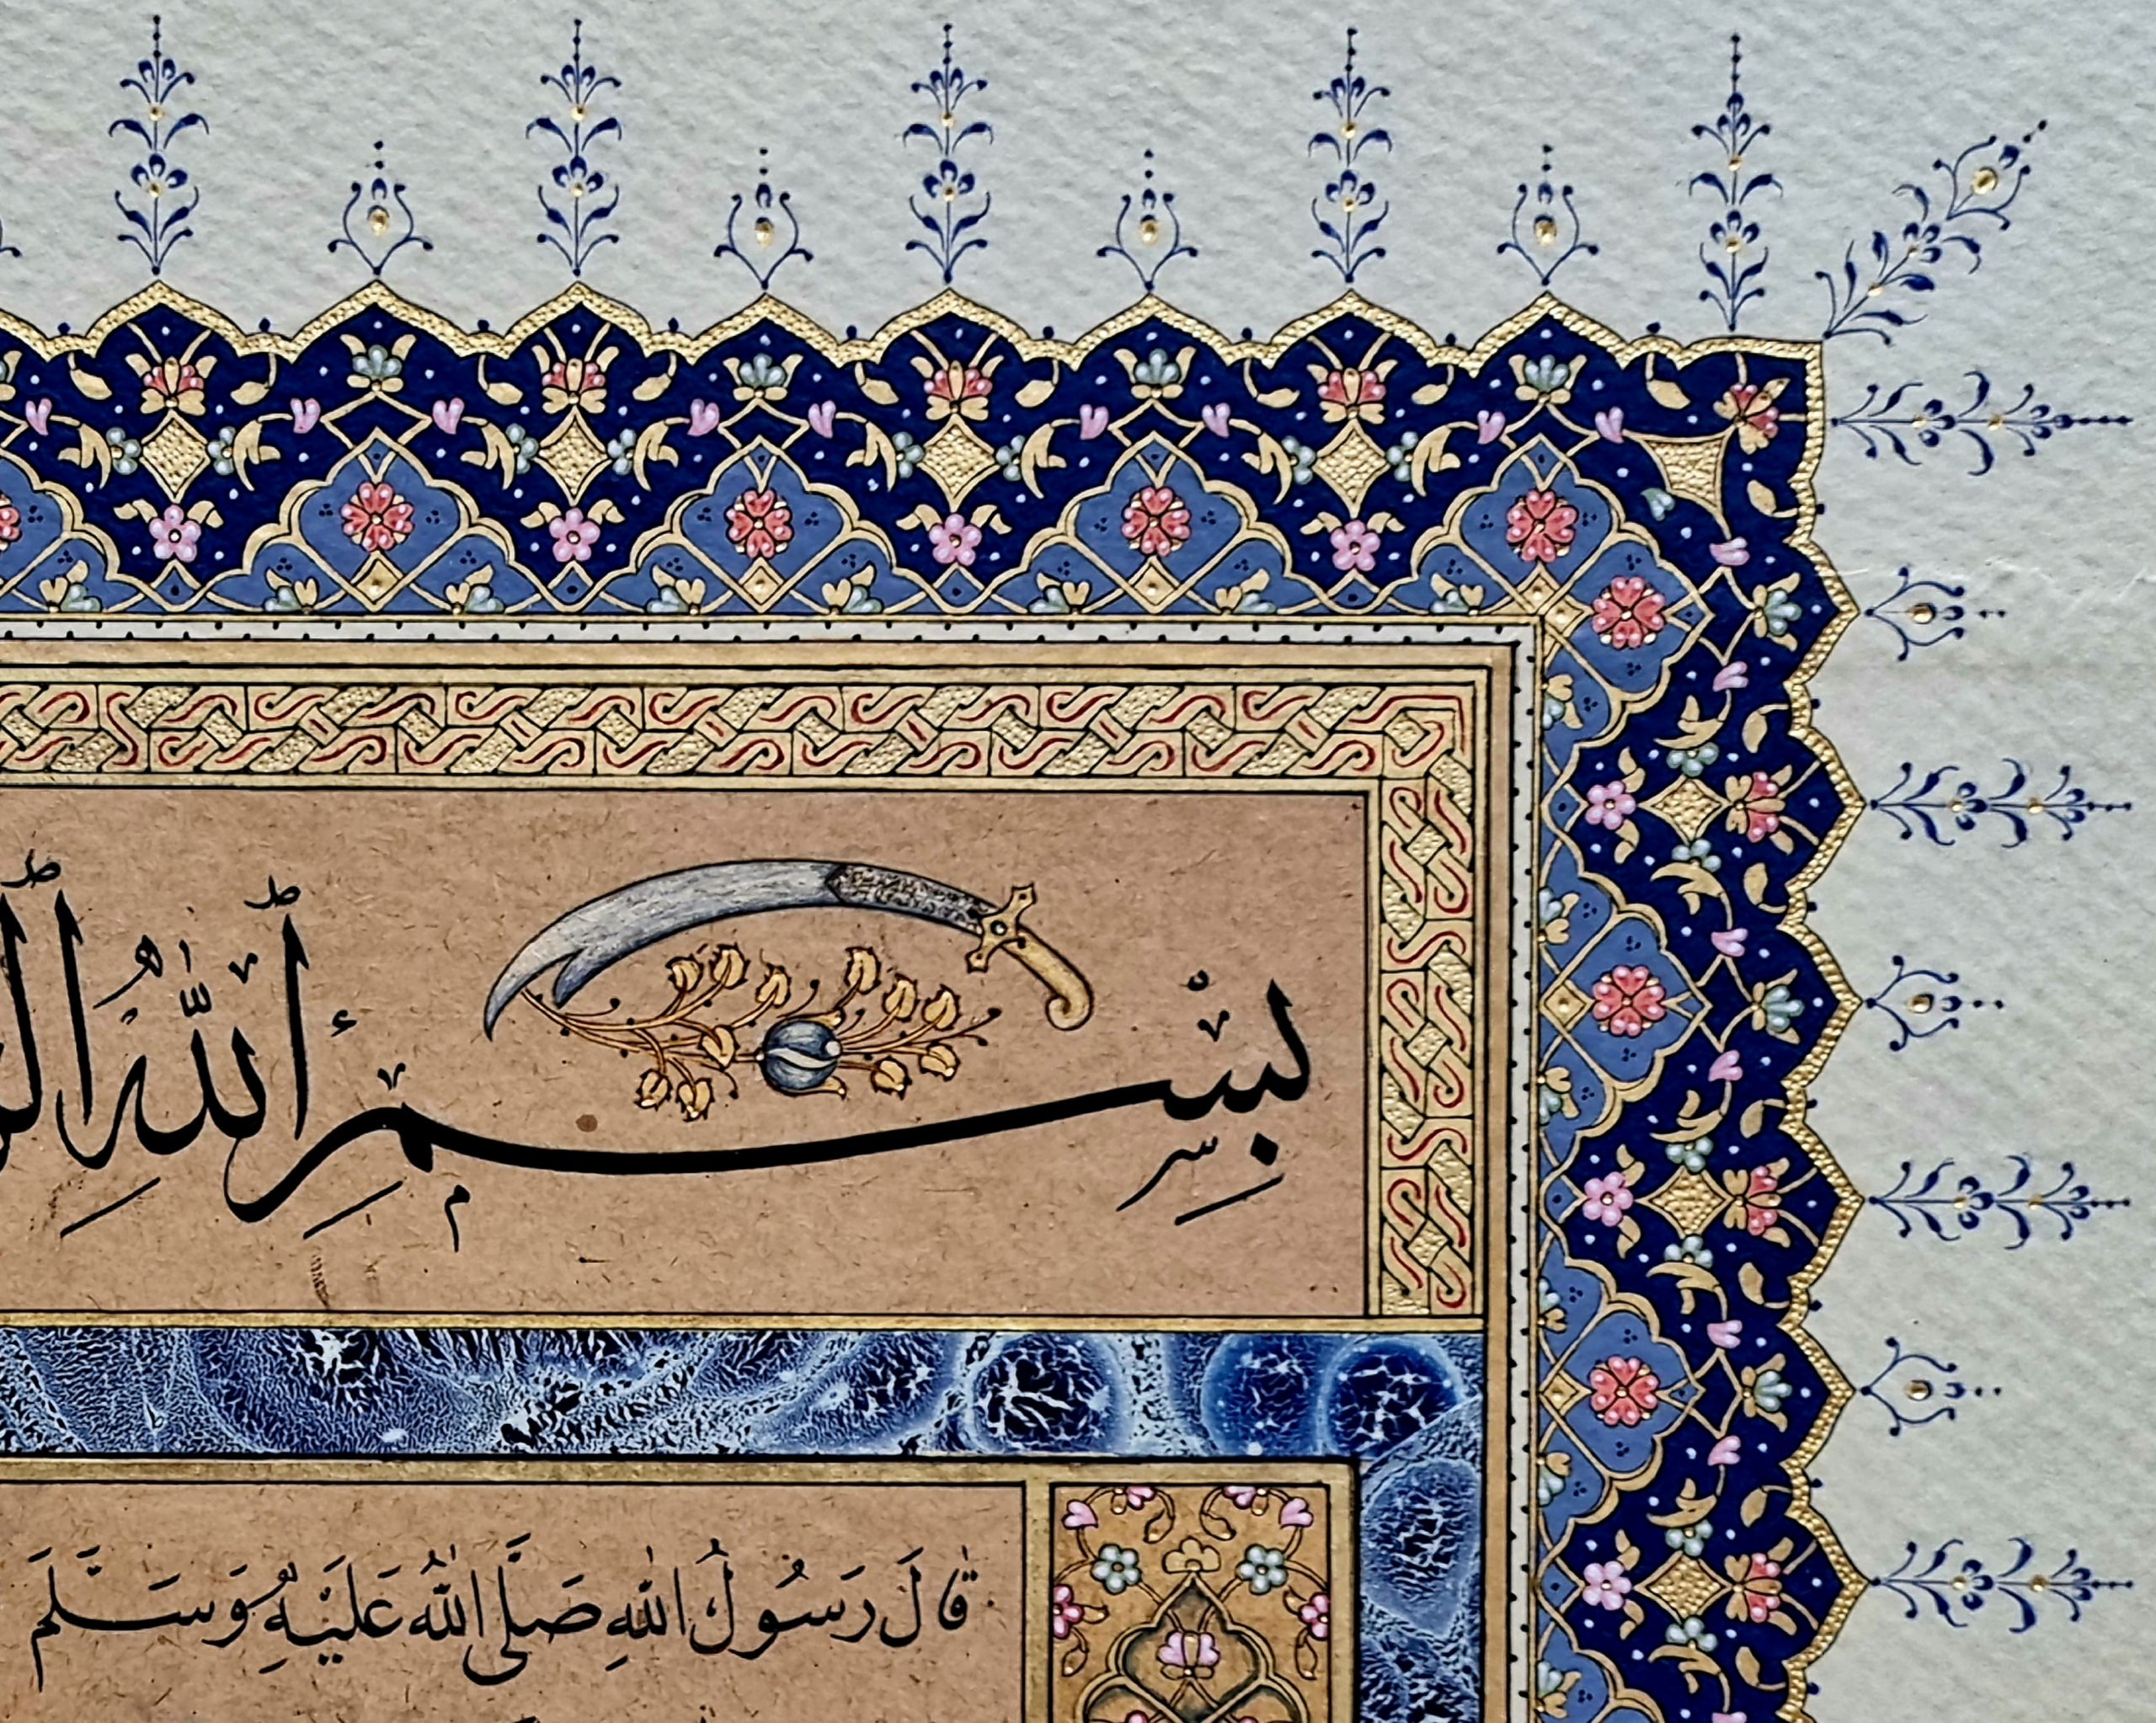 بِسْمِ ٱللّٰهِ ٱل
قَالَ رَسُولُ اللّٰهِ صَلَّى اللّٰهُ عَلَيْهِ وَسَلَّمَ